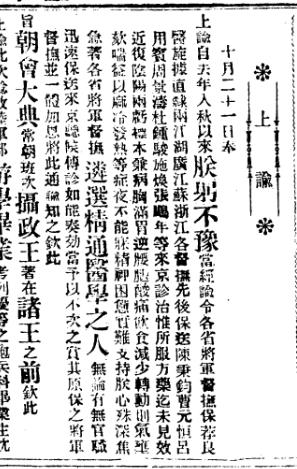 上諭
十月二十一日奉
上諭自去年入秋以來朕躬不豫當經諭令各省將軍督撫保荐良
醫旋據直隸兩江湖廣江蘇浙江各督撫先後保送陳秉鈞曹元恒呂
用賓周景濤杜鍾駿施煥張鵬年等來京診治惟所服方藥迄未見效
近復陰陽兩虧標本兼病胸滿胃逆腰腿酸痛飲食減少轉動則氣壅
欬喘益以麻冷發熱等症夜不能寐精神困憊實難支持朕心殊深焦
急著各省將軍督撫遴選精通醫學之人無論有無官職
迅速保送來京聽候傳診如能奏効當予以不次之賞其原保之將軍
督撫並一體加恩將此通諭知之欽此
旨朝會大典常朝班次攝政王著在諸王之前欽此
上諭此次驗放陸軍部游學畢業考列優等之砲兵科